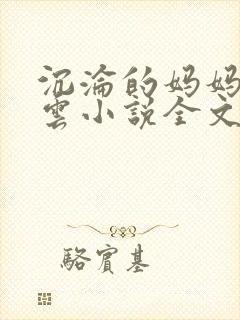 沉淪的妈妈
雲小說全文
駱賓基